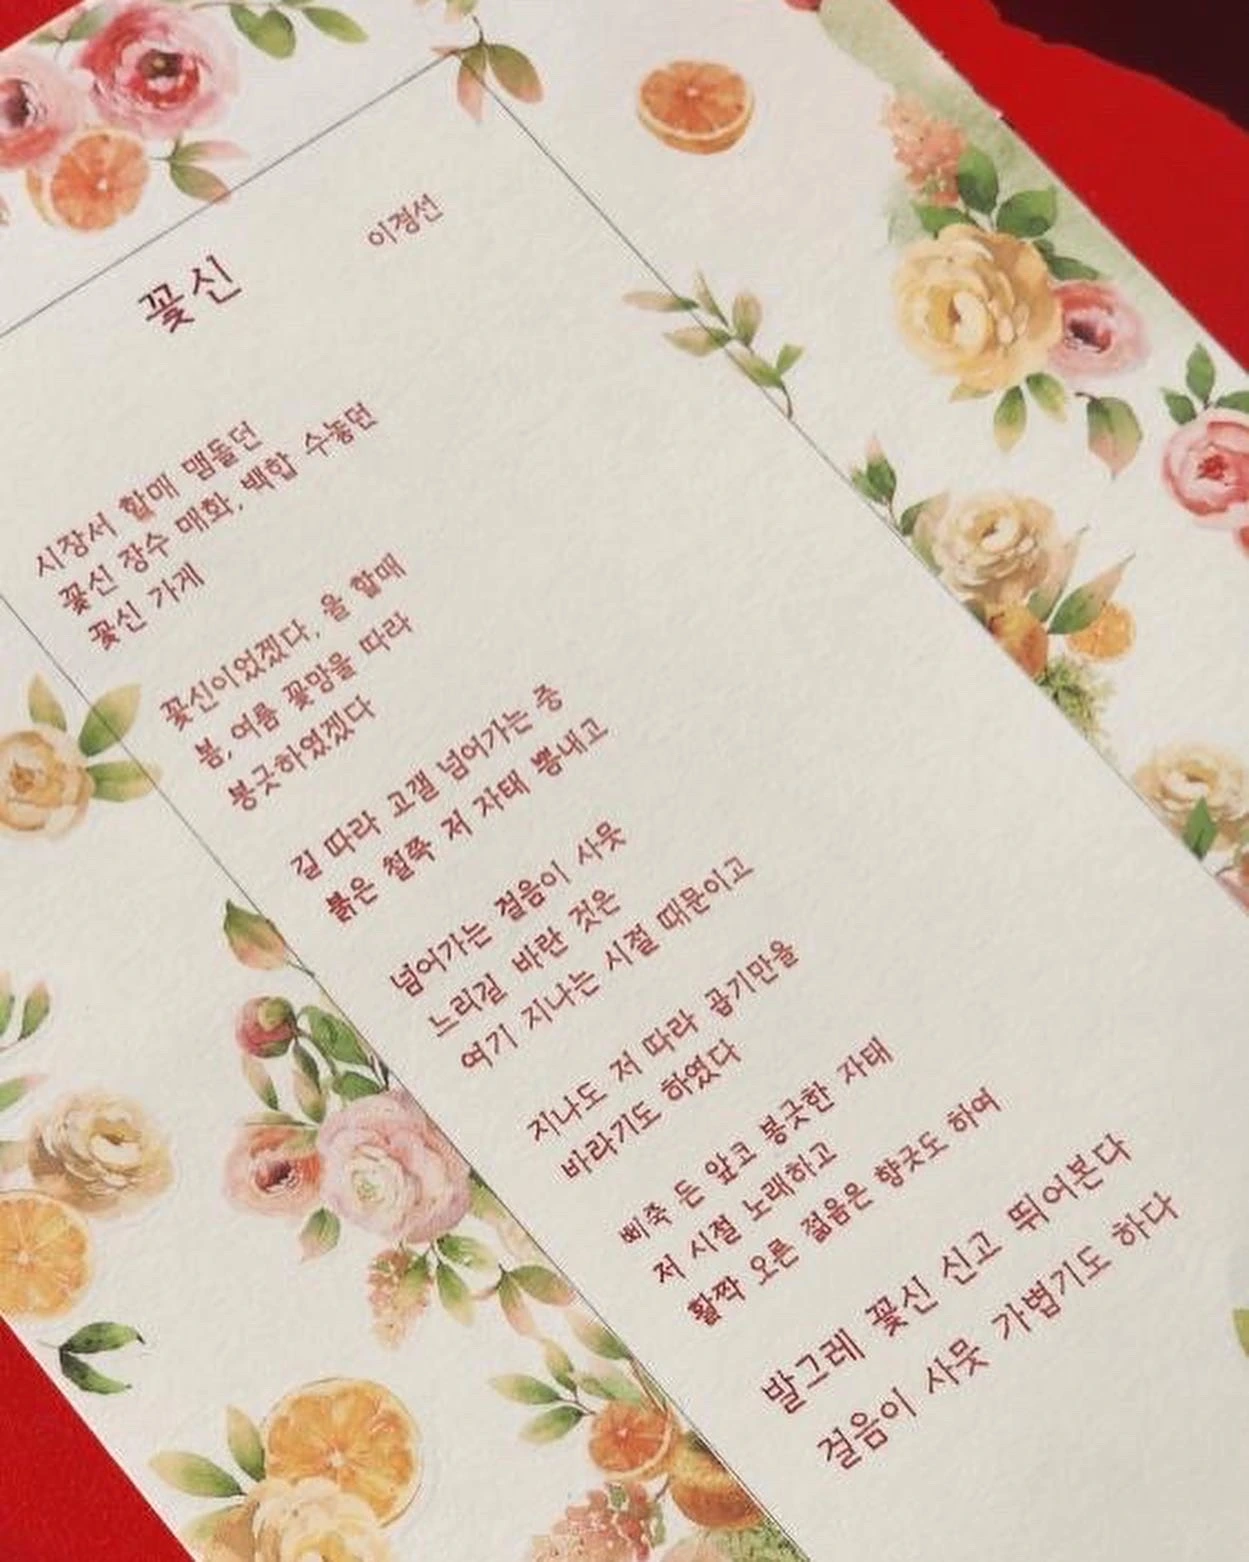 꽃신
이경선
시장서 할매 맴돌던
꽃신 장수 매화, 백합 수놓던
꽃신 가게
꽃신이었겠다, 울 할매
봄, 여름 꽃망울 따라
봉긋하였겠다
길 따라 고갤 넘어가는 중
붉은 철쭉 저 자태 뽐내고
넘어가는 걸음이 사뭇
느리길 바란 것은
여기 지나는 시절 때문이고
지나도 저 따라 곱기만을
바라기도 하였다
삐쭉 돋 앞코 봉긋한 자태
저 시절 노래하고
활짝 오른 젊음은 향긋도 하여
발그레 꽃신 신고 뛰어본다
걸음이 사뭇 가볍기도 하다